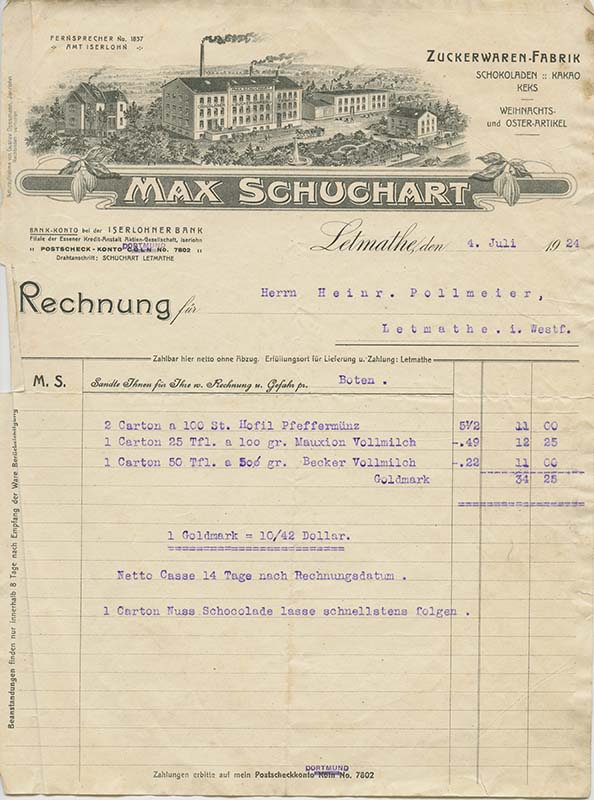 FERNSPRECHER No. 1837
AMT ISERLOHN
ZUCKERWAREN-FABRIK
SCHOKOLADEN :: KAKAO
KEKS
WEIHNACHTS-
und OSTER-ARTIKEL
MAX SCHUCHART
MAX SCHUCHART
BANK-KONTO bei der ISERLOHNER BANK
Filiale der Essener Kredit-Anstalt Aktien-Gesellschaft, Iserlohn
DORTMUND
" POSTSCHECK-KONTO CÖLN No. 7802 "
Drahtanschrift: SCHUCHART LETMATHE
Letmathe, den 4. Juli 1924
Rechnung für
Herrn Heinr. Pollmeier,
Letmathe. i. Westf.
Zahlbar hier netto ohne Abzug. Erfüllungsort für Lieferung u. Zahlung: Letmathe
M. S.
Sandte Ihnen für Ihre w. Rechnung u. Gefahr pr. Boten.
2 Carton a 100 St. Hofil Pfeffermünz 5½ 11 00
1 Carton 25 Tfl. a 100 gr. Mauxion Vollmilch -.49 12 25
1 Carton 50 Tfl. a 50 gr. Becker Vollmilch -.22 11 00
Goldmark 34 25
1 Goldmark = 10/42 Dollar.
Netto Casse 14 Tage nach Rechnungsdatum .
1 Carton Nuss Schocolade lasse schnellstens folgen .
Beanstandungen finden nur innerhalb 8 Tage nach Empfang der Ware Berücksichtigung
DORTMUND
Zahlungen erbitte auf mein Postscheckkonto Köln No. 7802